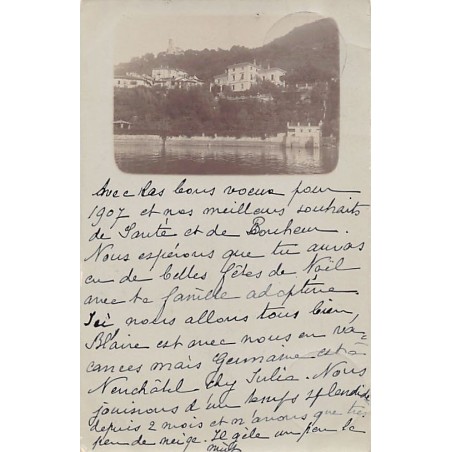 Avec Ras bons voeux pour
1907 et nos meilleurs souhaits
de Santé et de Bonheur.
Nous espérons que tu auras
eu de belles fêtes de Noël
avec ta famille adoptive.
Ici nous allons tous bien,
Blaire est avec nous en va=
cances mais Germaine est à
Neuchâtel chy Julia. Nous
jouissons d'un temps splendide
depuis 2 mois et n'avons que très
peu de neige. Il gèle un peu la
nuit